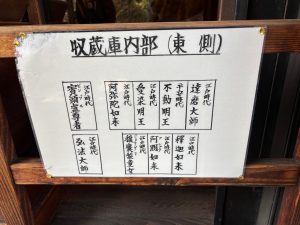 収蔵庫内部(東側)
江戸時代
達磨大師
平安時代
不動明王
江戸時代
愛染明王
江戸時代
阿弥陀如来
江戸時代
賓頭盧尊者
江戸時代
釈迦如来
江戸時代
阿閦如来
江戸時代
江戸時代
弘法大師